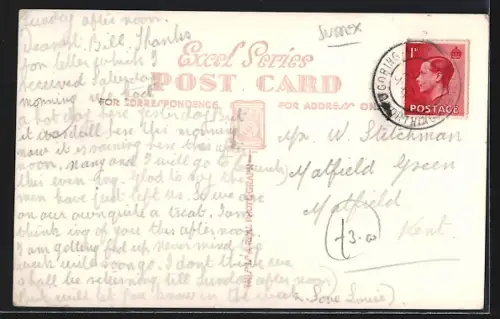 Sunday after noon.
Dearest Bill Thanks
for letter which I
received Saturday
morning we had
a hot day here yesterday But
it is dull here this morning
now it is raining here this after
noon. nany and I will go to (Church)
this evening. Glad to say the
men have just left us. So we are
on our own quite a treat. I am
think ing of you this afternoon.
I am getting fed up never mind the
week will soon go. I dont think we
shall be returning till Sunday after noon
But will let you know in the week
Love Louise).
Sussex
Excel Series
POST CARD
FOR CORRESPONDENCE.
FOR ADDRESS ONLY
GORING
WORTHING
1D
POSTAGE
PHOTOGRAPH
Mr. W. Stelchman
Matfield Green
Matfield
Kent.
£3.00